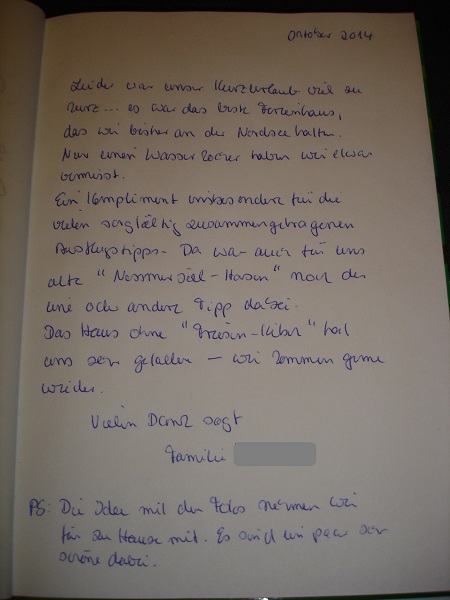 Oktober 2014
Leider war unser Kurzurlaub viel zu
kurz... es war das beste Ferienhaus,
das wir bisher an der Nordsee hatten.
Nur einen Wasserkocher haben wir etwas
vermisst.
Ein Kompliment insbesondere für die
vielen sorgfältig zusammengetragenen
Ausflugstipps. Da war auch für uns
alte "Nessmersiel-Hasen" noch der
eine oder andere Tipp dabei.
Das Haus ohne "Friesen-Kitsch" hat
uns sehr gefallen – wir kommen gerne
wieder.
Vielen Dank sagt
Familie
PS: Die Idee mit den Fotos nehmen wir
für zu Hause mit. Es sind ein paar sehr
schöne dabei.